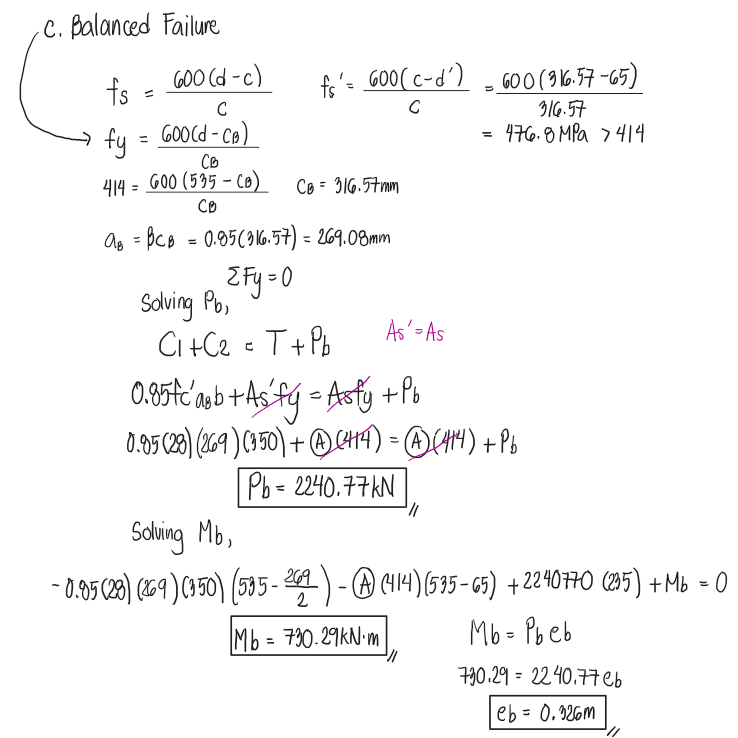 c. Balanced Failure
fs = 600(d-c) / c
fs' = 600(c-d') / c = 600(316.57-65) / 316.57
= 476.8 MPa > 414
fy = 600(d-CB) / CB
414 = 600(535-CB) / CB
CB = 316.57mm
aB = βCB = 0.85(316.57) = 269.08mm
ΣFy = 0
Solving Pb,
C1+C2 = T + Pb
As' = As
0.85fc'aBb + As'fy = Asfy + Pb
0.85(28)(269)(350) + A(414) = A(414) + Pb
Pb = 2240.77kN
Solving Mb,
-0.85(28)(269)(350)(535 - 269/2) - A(414)(535-65) + 2240770 (235) + Mb = 0
Mb = 730.29kN·m
Mb = Pb eb
730.29 = 2240.77 eb
eb = 0.326m